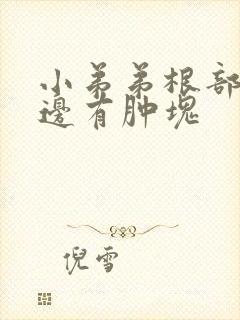 小弟弟根部
邊有肿塊
倪雪